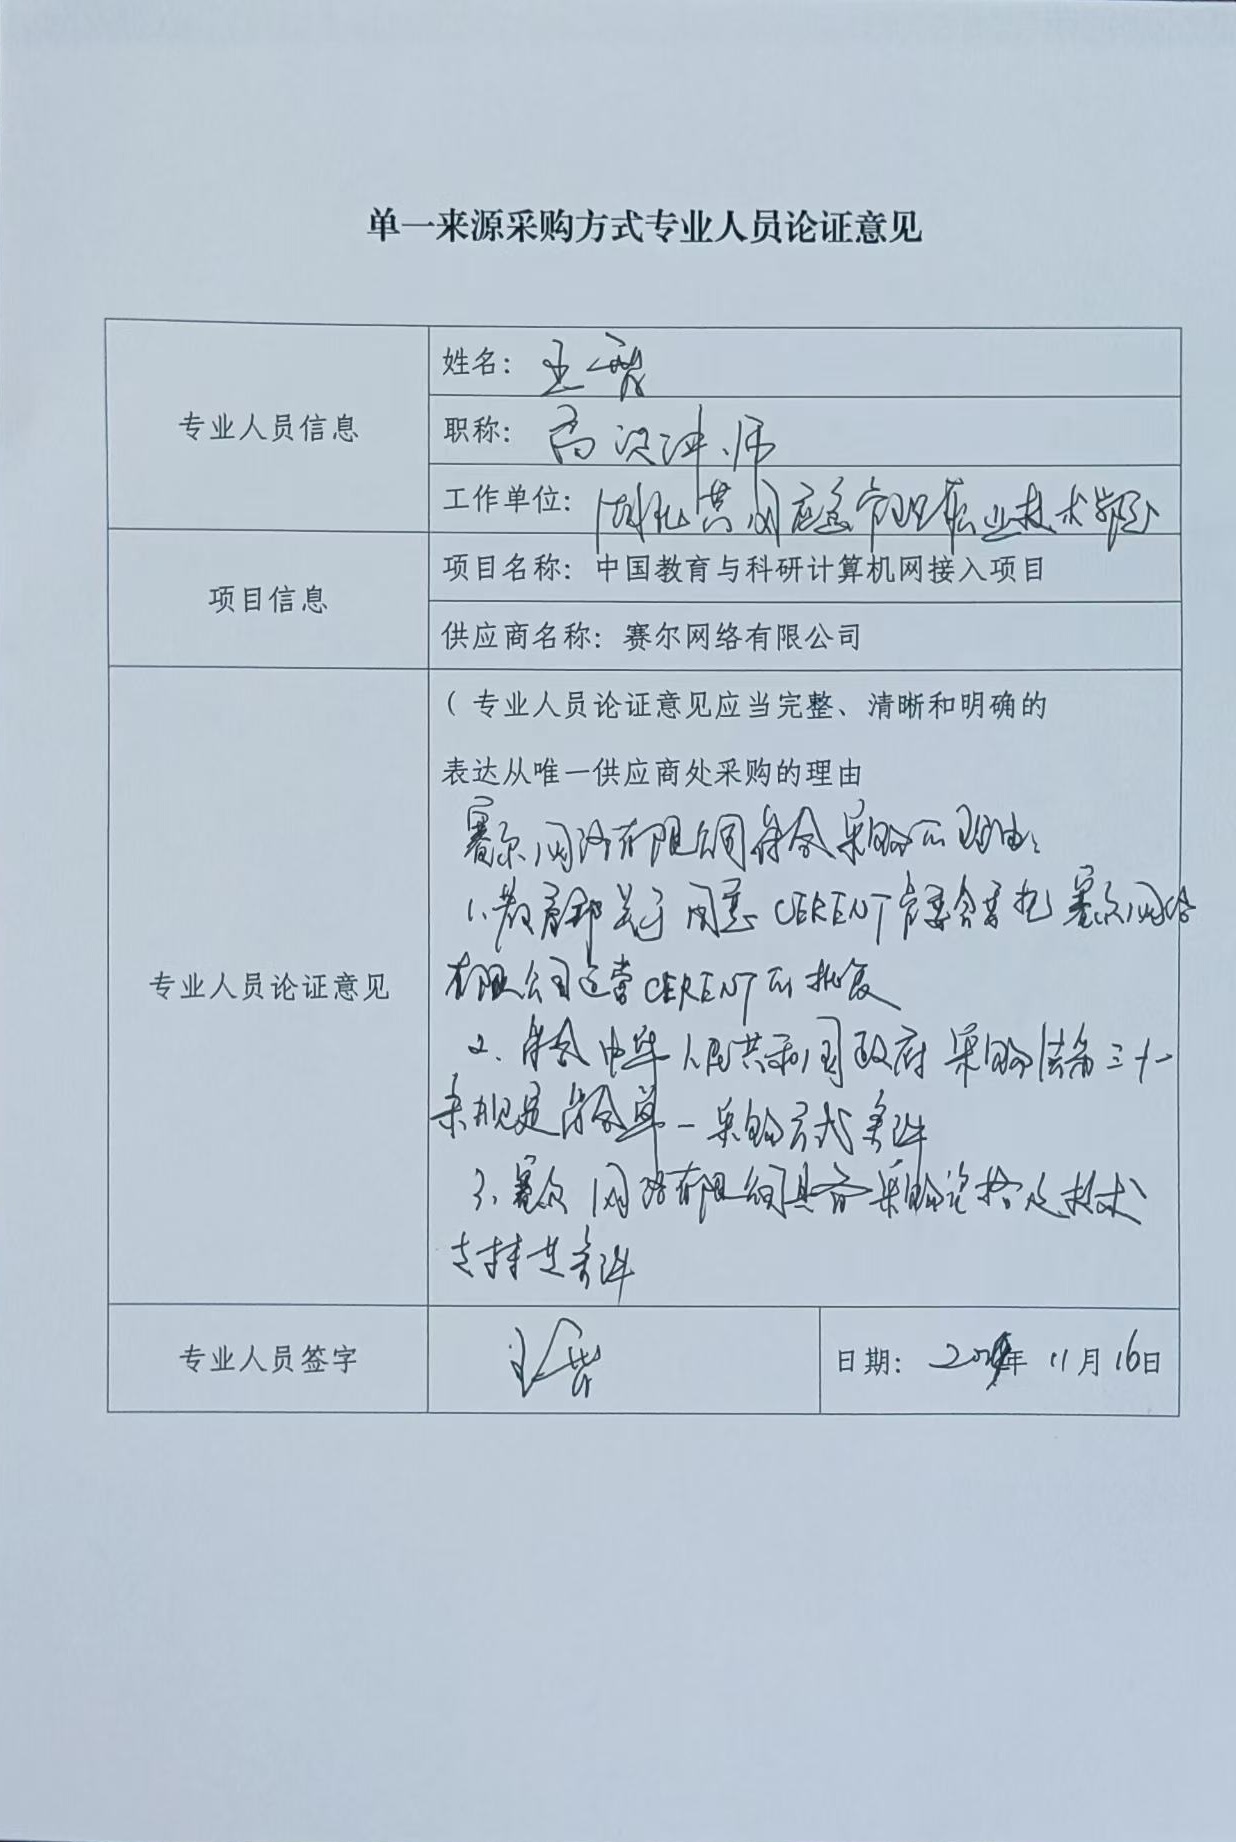 单一来源采购方式专业人员论证意见
专业人员信息
姓名：王
职称：高级讲师
工作单位：湖北黄冈应急管理职业技术学院
项目信息
项目名称：中国教育与科研计算机网接入项目
供应商名称：赛尔网络有限公司
专业人员论证意见
（专业人员论证意见应当完整、清晰和明确的
表达从唯一供应商处采购的理由
赛尔网络有限公司符合采购的理由：
1、教育部关于同意CERENT管委会委托赛尔网络
有限公司运营CERENT的批复
2、符合中华人民共和国政府采购法第三十一
条规定符合单一采购方式条件
3、赛尔网络有限公司具备采购资格及技术
支持其条件
专业人员签字
王
日期：年11月16日